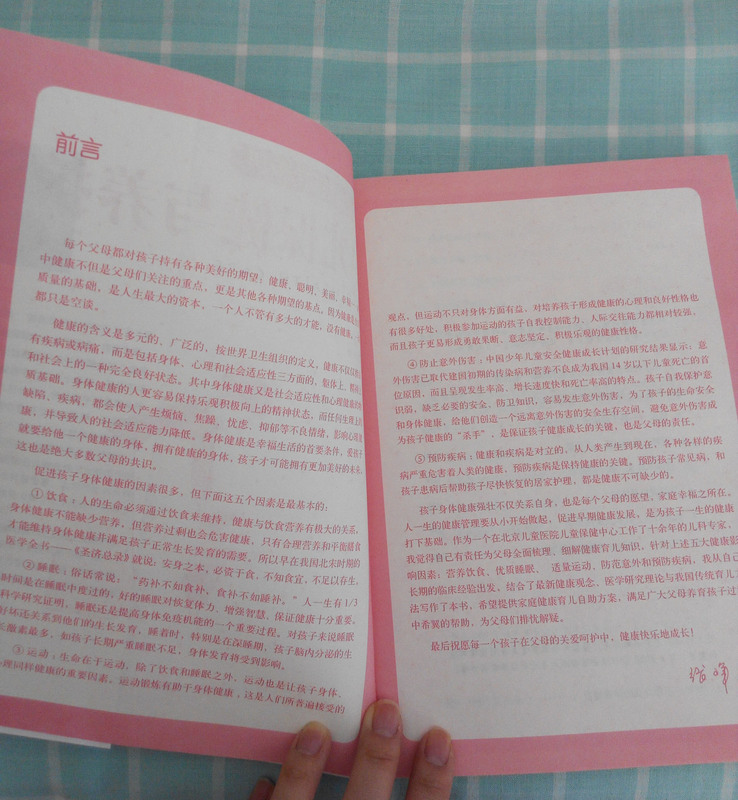 前言
每个父母都对孩子持有各种美好的期望：健康、聪明、美丽、幸福
中健康不但是父母们关注的重点，更是其他各种期望的基点，因为健康是
质量的基础，是人生最大的资本，一个人不管有多大的才能，没有健康，
都只是空谈。
健康的含义是多元的、广泛的，按世界卫生组织的定义，健康不仅仅
有疾病或病痛，而是包括身体、心理和社会适应性三方面的，躯体上、
和社会上的一种完全良好状态。其中身体健康又是社会适应性和心理健康的
质基础。身体健康的人更容易保持乐观积极向上的精神状态，而任何生理上的
缺陷、疾病，都会使人产生烦恼、焦躁、忧虑、抑郁等不良情绪，影响心理
康，并导致人的社会适应能力降低。身体健康是幸福生活的首要条件，爱孩子
就要给他一个健康的身体，拥有健康的身体，孩子才可能拥有更加美好的未来，
这也是绝大多数父母的共识。
促进孩子身体健康的因素很多，但下面这五个因素是最基本的：
①饮食：人的生命必须通过饮食来维持，健康与饮食营养有极大的关系，
身体健康不能缺少营养，但营养过剩也会危害健康，只有合理营养和平衡膳食
才能维持身体健康并满足孩子正常生长发育的需要。所以早在我国北宋时期的
医学全书——《圣济总录》就说：安身之本，必资于食，不知食宜，不足以存生。
②睡眠：俗话常说：“药补不如食补、食补不如睡补。”人一生有1/3
时间是在睡眠中度过的，好的睡眠对恢复体力、增强智慧、保证健康十分重要。
科学研究证明，睡眠还是提高身体免疫机能的一个重要过程。对孩子来说睡眠
好坏还关系到他们的生长发育，睡着时，特别是在深睡期，孩子脑内分泌的生
长激素最多，如孩子长期严重睡眠不足，身体发育将受到影响。
③运动：生命在于运动，除了饮食和睡眠之外，运动也是让孩子身体、
心理同样健康的重要因素。运动锻炼有助于身体健康，这是人们所普遍接受的
观点，但运动不只对身体方面有益，对培养孩子形成健康的心理和良好性格也
有很多好处，积极参加运动的孩子自我控制能力、人际交往能力都相对较强，
而且孩子更易形成勇敢果断、意志坚定、积极乐观的健康性格。
④防止意外伤害：中国少年儿童安全健康成长计划的研究结果显示：意
外伤害已取代建国初期的传染病和营养不良成为我国14岁以下儿童死亡的首
位原因，而且呈现发生率高、增长速度快和死亡率高的特点。孩子自我保护意
识弱，缺乏必要的安全、防卫知识，容易发生意外伤害，为了孩子的生命安全
和身体健康，给他们创造一个远离意外伤害的安全生存空间，避免意外伤害成
为孩子健康的“杀手”，是保证孩子健康成长的关键，也是父母的责任。
⑤预防疾病：健康和疾病是对立的，从人类产生到现在，各种各样的疾
病严重危害着人类的健康，预防疾病是保持健康的关键。预防孩子常见病，和
孩子患病后帮助孩子尽快恢复的居家护理，都是健康不可缺少的。
孩子身体健康强壮不仅关系自身，也是每个父母的愿望，家庭幸福之所在。
人一生的健康管理要从小开始做起，促进早期健康发展。是为孩子一生的健康
打下基础。作为一个在北京儿童医院儿童保健中心工作了十余年的儿科专家，
我觉得自己有责任为父母全面梳理，细解健康育儿知识，针对上述五大健康影
响因素：营养饮食、优质睡眠、适量运动、防范意外和预防疾病，我从自己
长期的临床经验出发，结合了最新健康观念、医学研究理论与我国传统育儿
法写作了本书，希望提供家庭健康育儿自助方案，满足广大父母养育孩子过
中希冀的帮助，为父母们排忧解疑。
最后祝愿每一个孩子在父母的关爱呵护中，健康快乐地成长！